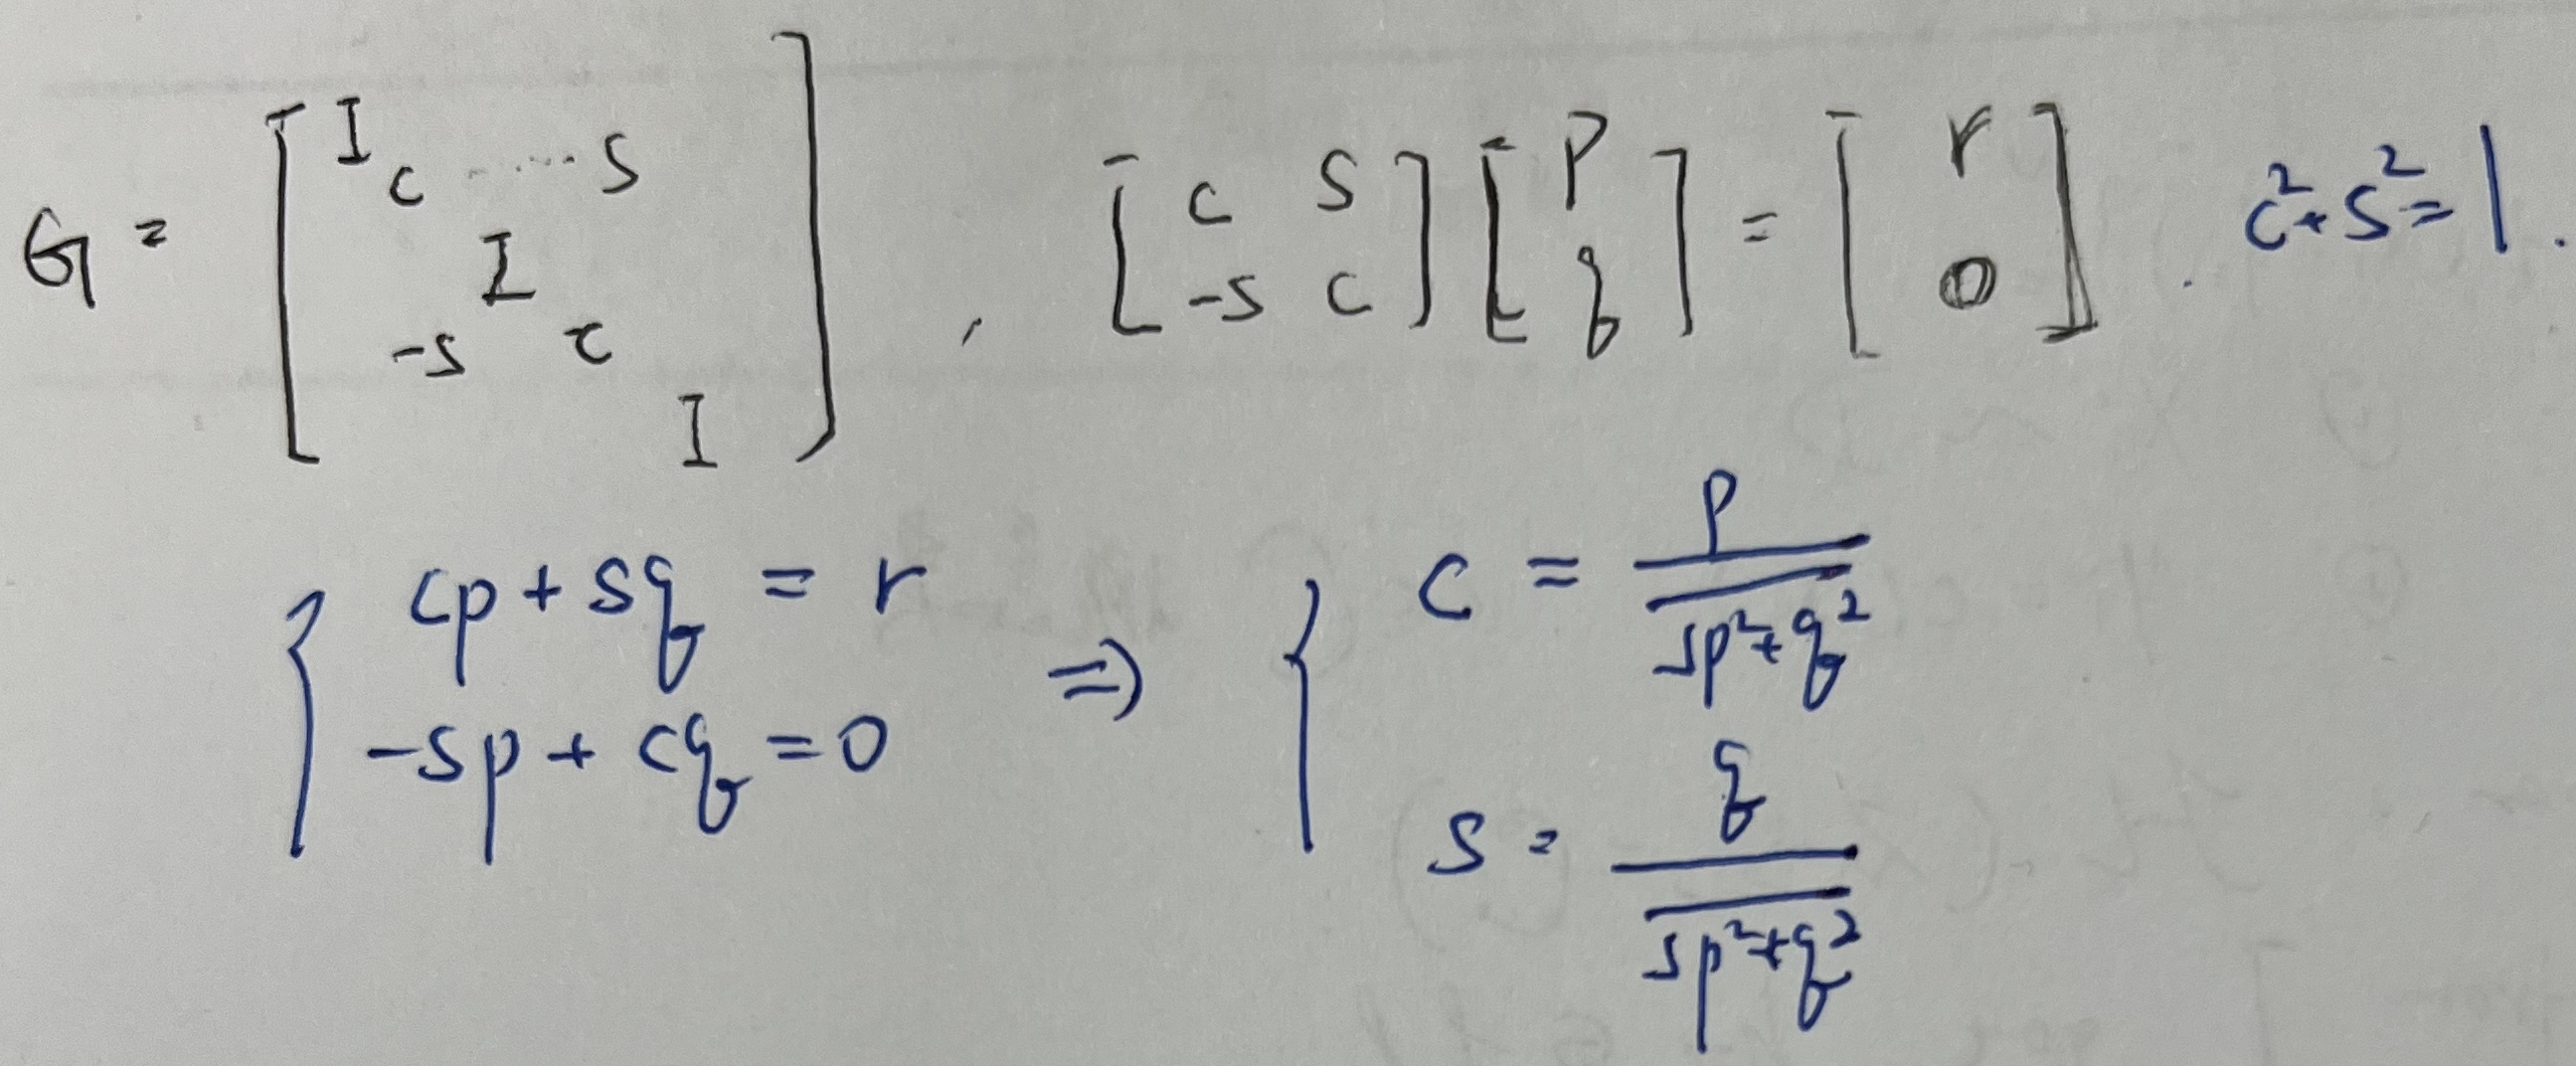 G = [ I c ..... s I -s c I ] , [ c s -s c ] [ p q ] = [ r 0 ] . c²+s²=1.
{ cp + sq = r -sp + cq = 0 ⇒ { c = p / √p²+q² s = q / √p²+q²